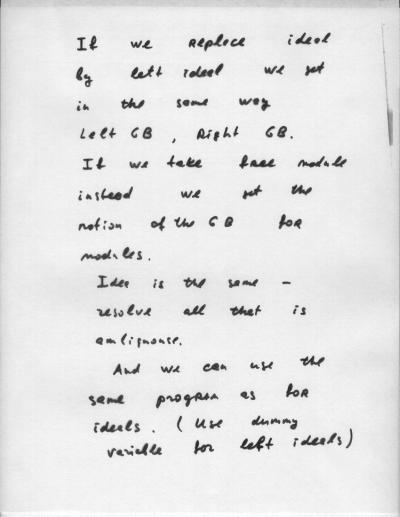 If we replace ideal
by left ideal we get
in the same way
Left GB, Right GB.
If we take free module
instead we get the
notion of the GB for
modules.
Idea is the same -
resolve all that is
ambignouse.
And we can use the
same program as for
ideals. (Use dummy
variable for left ideals)